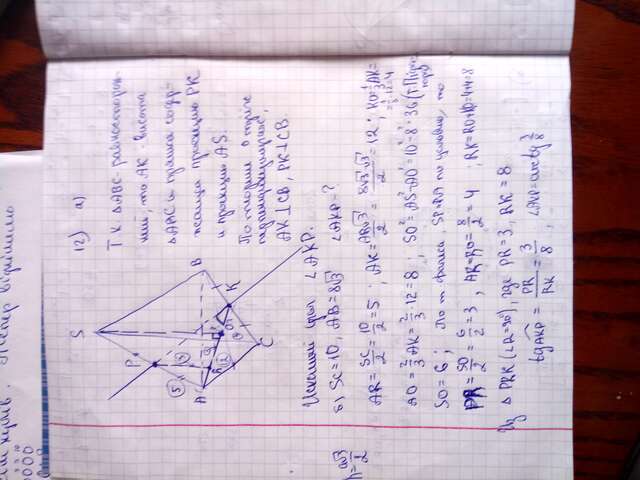 12) а)
S
P
5
A
R
12
O
C
K
B
Т.К. △ABC-равносторон-
ний, то AK-висота
△ABC и прямая содер-
жащая проекцию PK
и проекцию AS.
По теореме о трёх
перпендикулярах,
AK⊥CB, PK⊥CB.
Искомый угол ∠AKP.
б) SC=10, AB=8√3 ∠AKP=?
h=a√3/2
AP=SC/2=10/2=5 ; AK=AB√3/2=8√3·√3/2=12 ; KO=1/3AK=
=1/3·12=4
AO=2/3AK=2/3·12=8 ; SO²=AS²-AO²=10²-8²=36 (т.Піфа-
гора)
SO=6 ; По т. Фалеса, SP=PA по условию, то
PR=SO/2=6/2=3 , AR=RO=8/2=4 , RK=RO+KO=4+4=8
Из △PRK (∠R=90°), где PR=3, RK=8
tgAKP=PR/RK=3/8 , ∠AKP=arctg 3/8